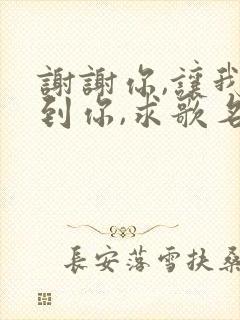 謝謝你,讓我
到你,求歌名
長安落雪扶桑